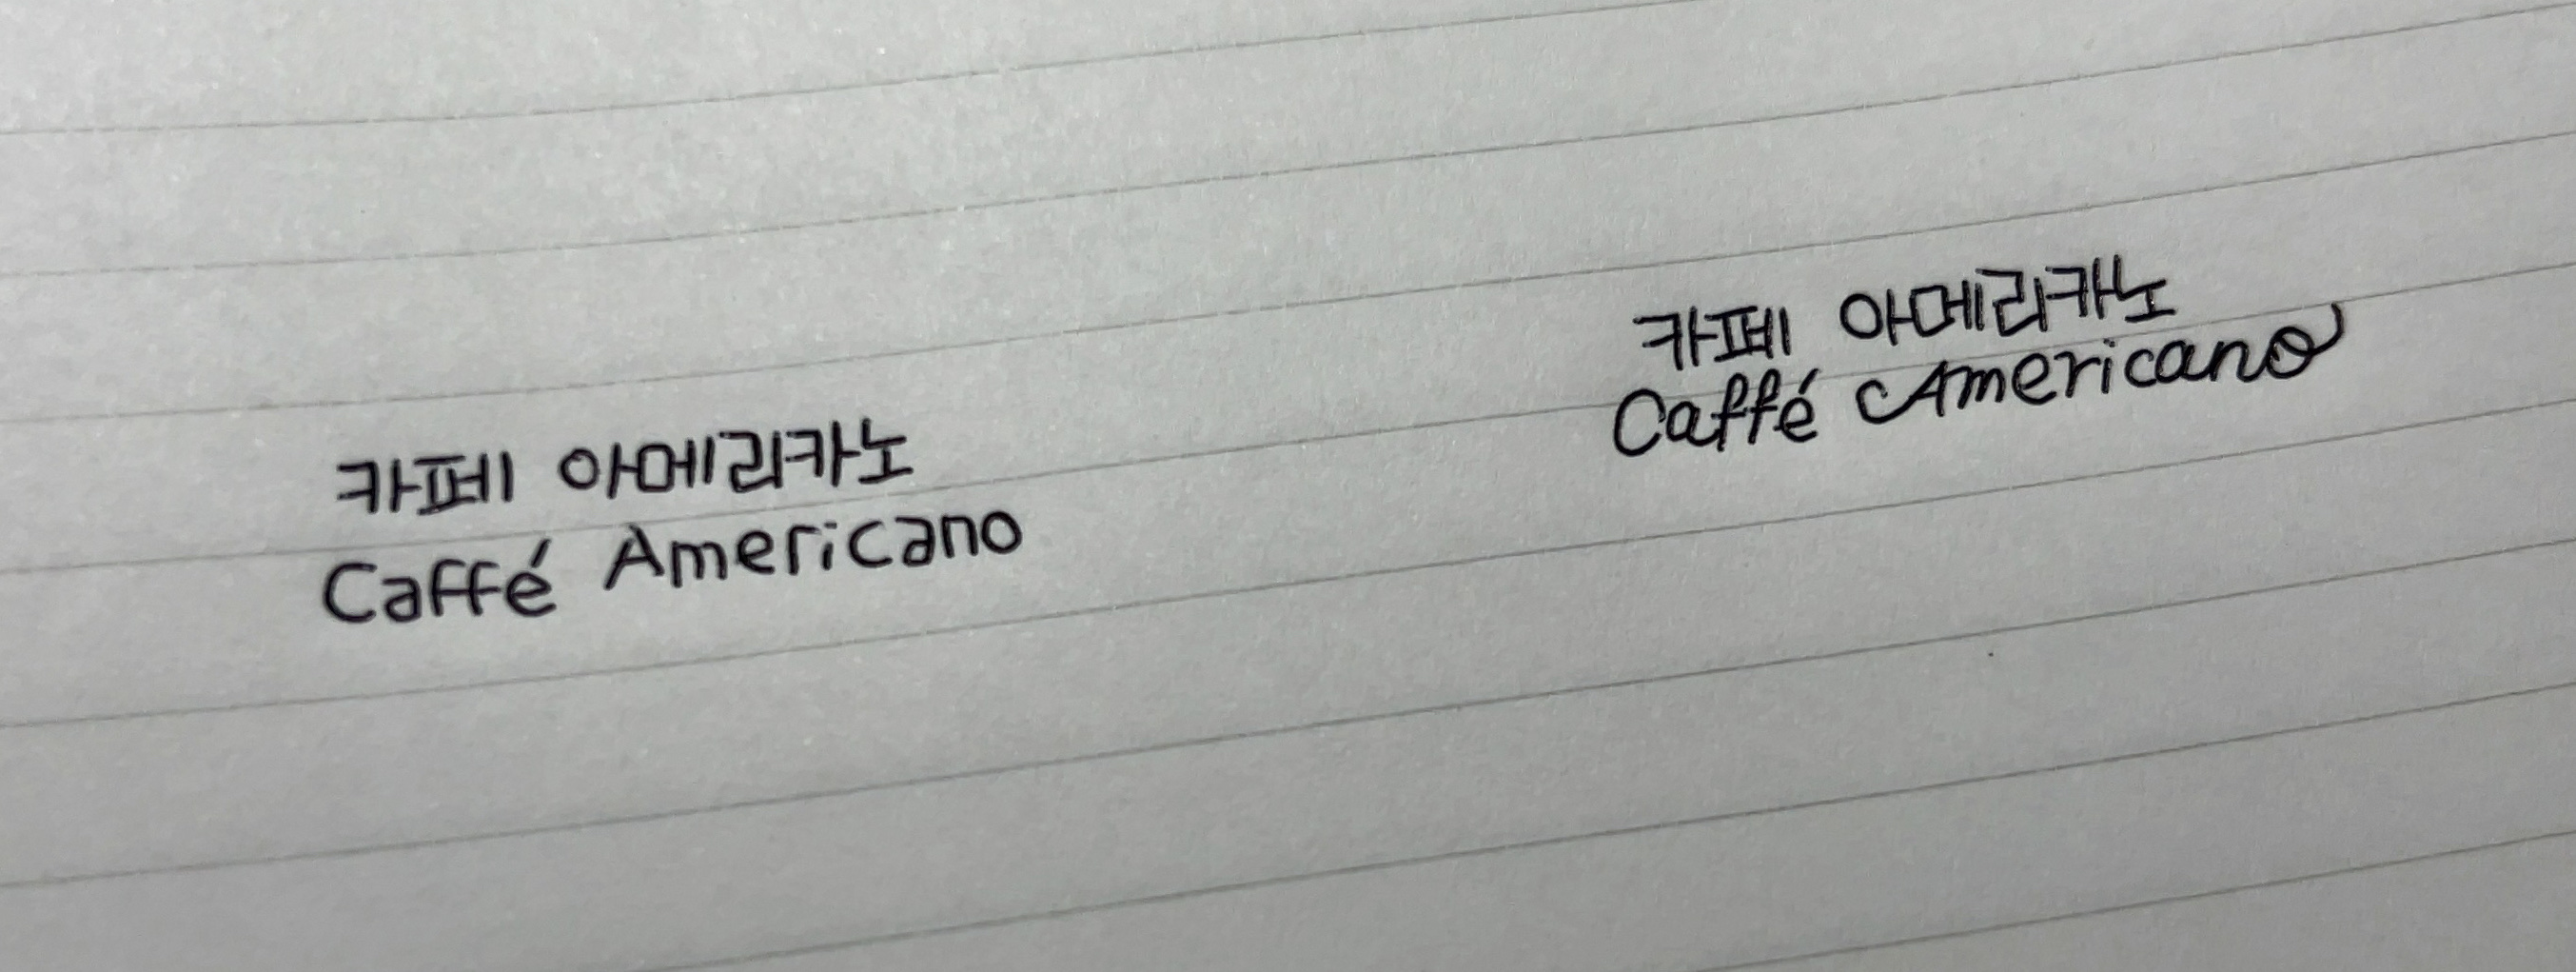 카페 아메리카노
Caffé Americano
카페 아메리카노
Caffé Americano